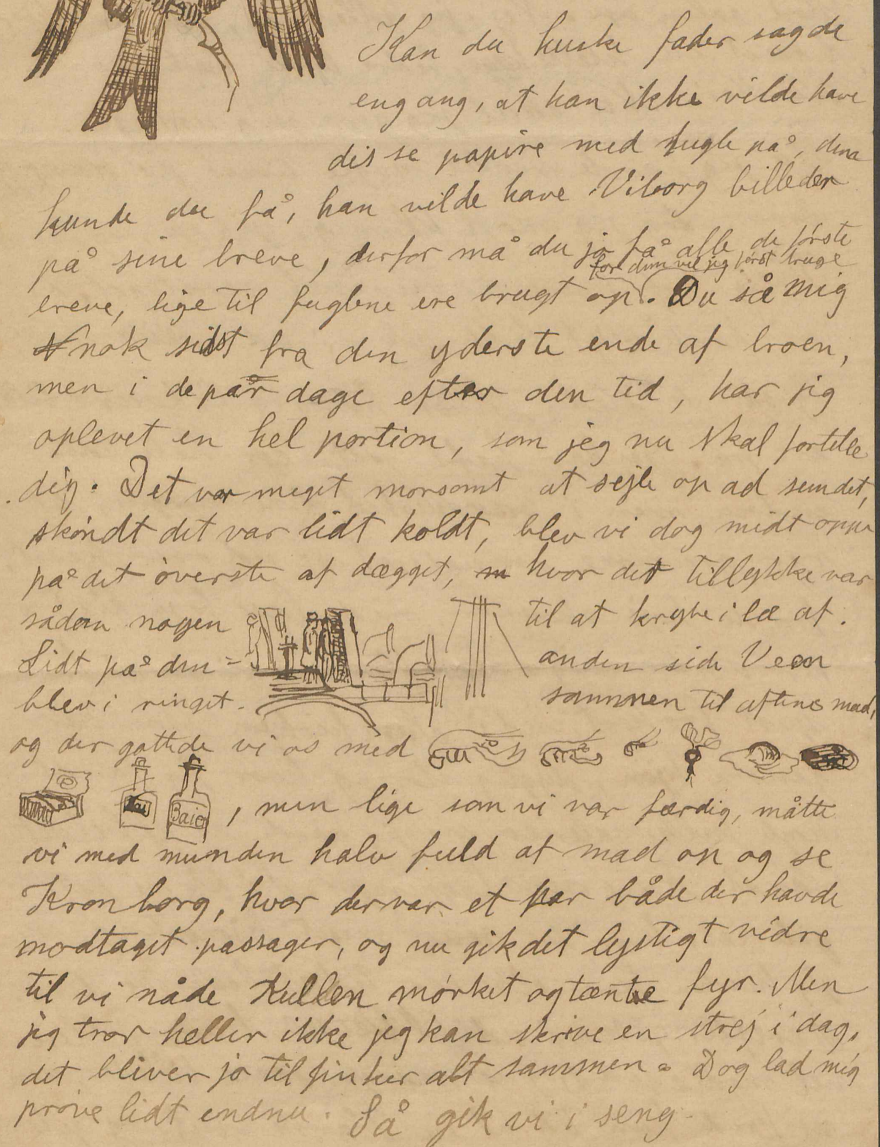 Kan du huske fader sagde
engang, at han ikke vilde have
disse papire med fugle på, dem
kunde du få, han vilde have Viborg billeder
på sine breve, derfor må du jo få alle de første
for dem vil jeg først bruge
breve, lige til fuglene ere brugt op. Du så mig
nok sidst fra den yderste ende af broen,
men i de par dage efter den tid, har jeg
oplevet en hel portion, som jeg nu skal fortelle
dig. Det var meget morsomt at sejle op ad sundet,
skøndt det var lidt koldt, blev vi dog midt oppe
på det øverste af dægget, hvor det tillykke var
sådan nogen til at krybe i læ af.
Lidt på den anden side Veen
blev i ringet sammen til aftens mad,
og der gottede vi os med
Baier
, men lige som vi var færdig, måtte
vi med munden halv fuld af mad op og se
Kronborg, hvor der var et par både der havde
modtaget passager, og nu gik det lystigt vidre
til vi nåde Kullen mørket og tænte fyr. Men
jeg tror heller ikke jeg kan skrive en strej i dag,
det bliver jo til finker alt sammen. Dog lad mig
prøve lidt endnu. Så gik vi i seng.